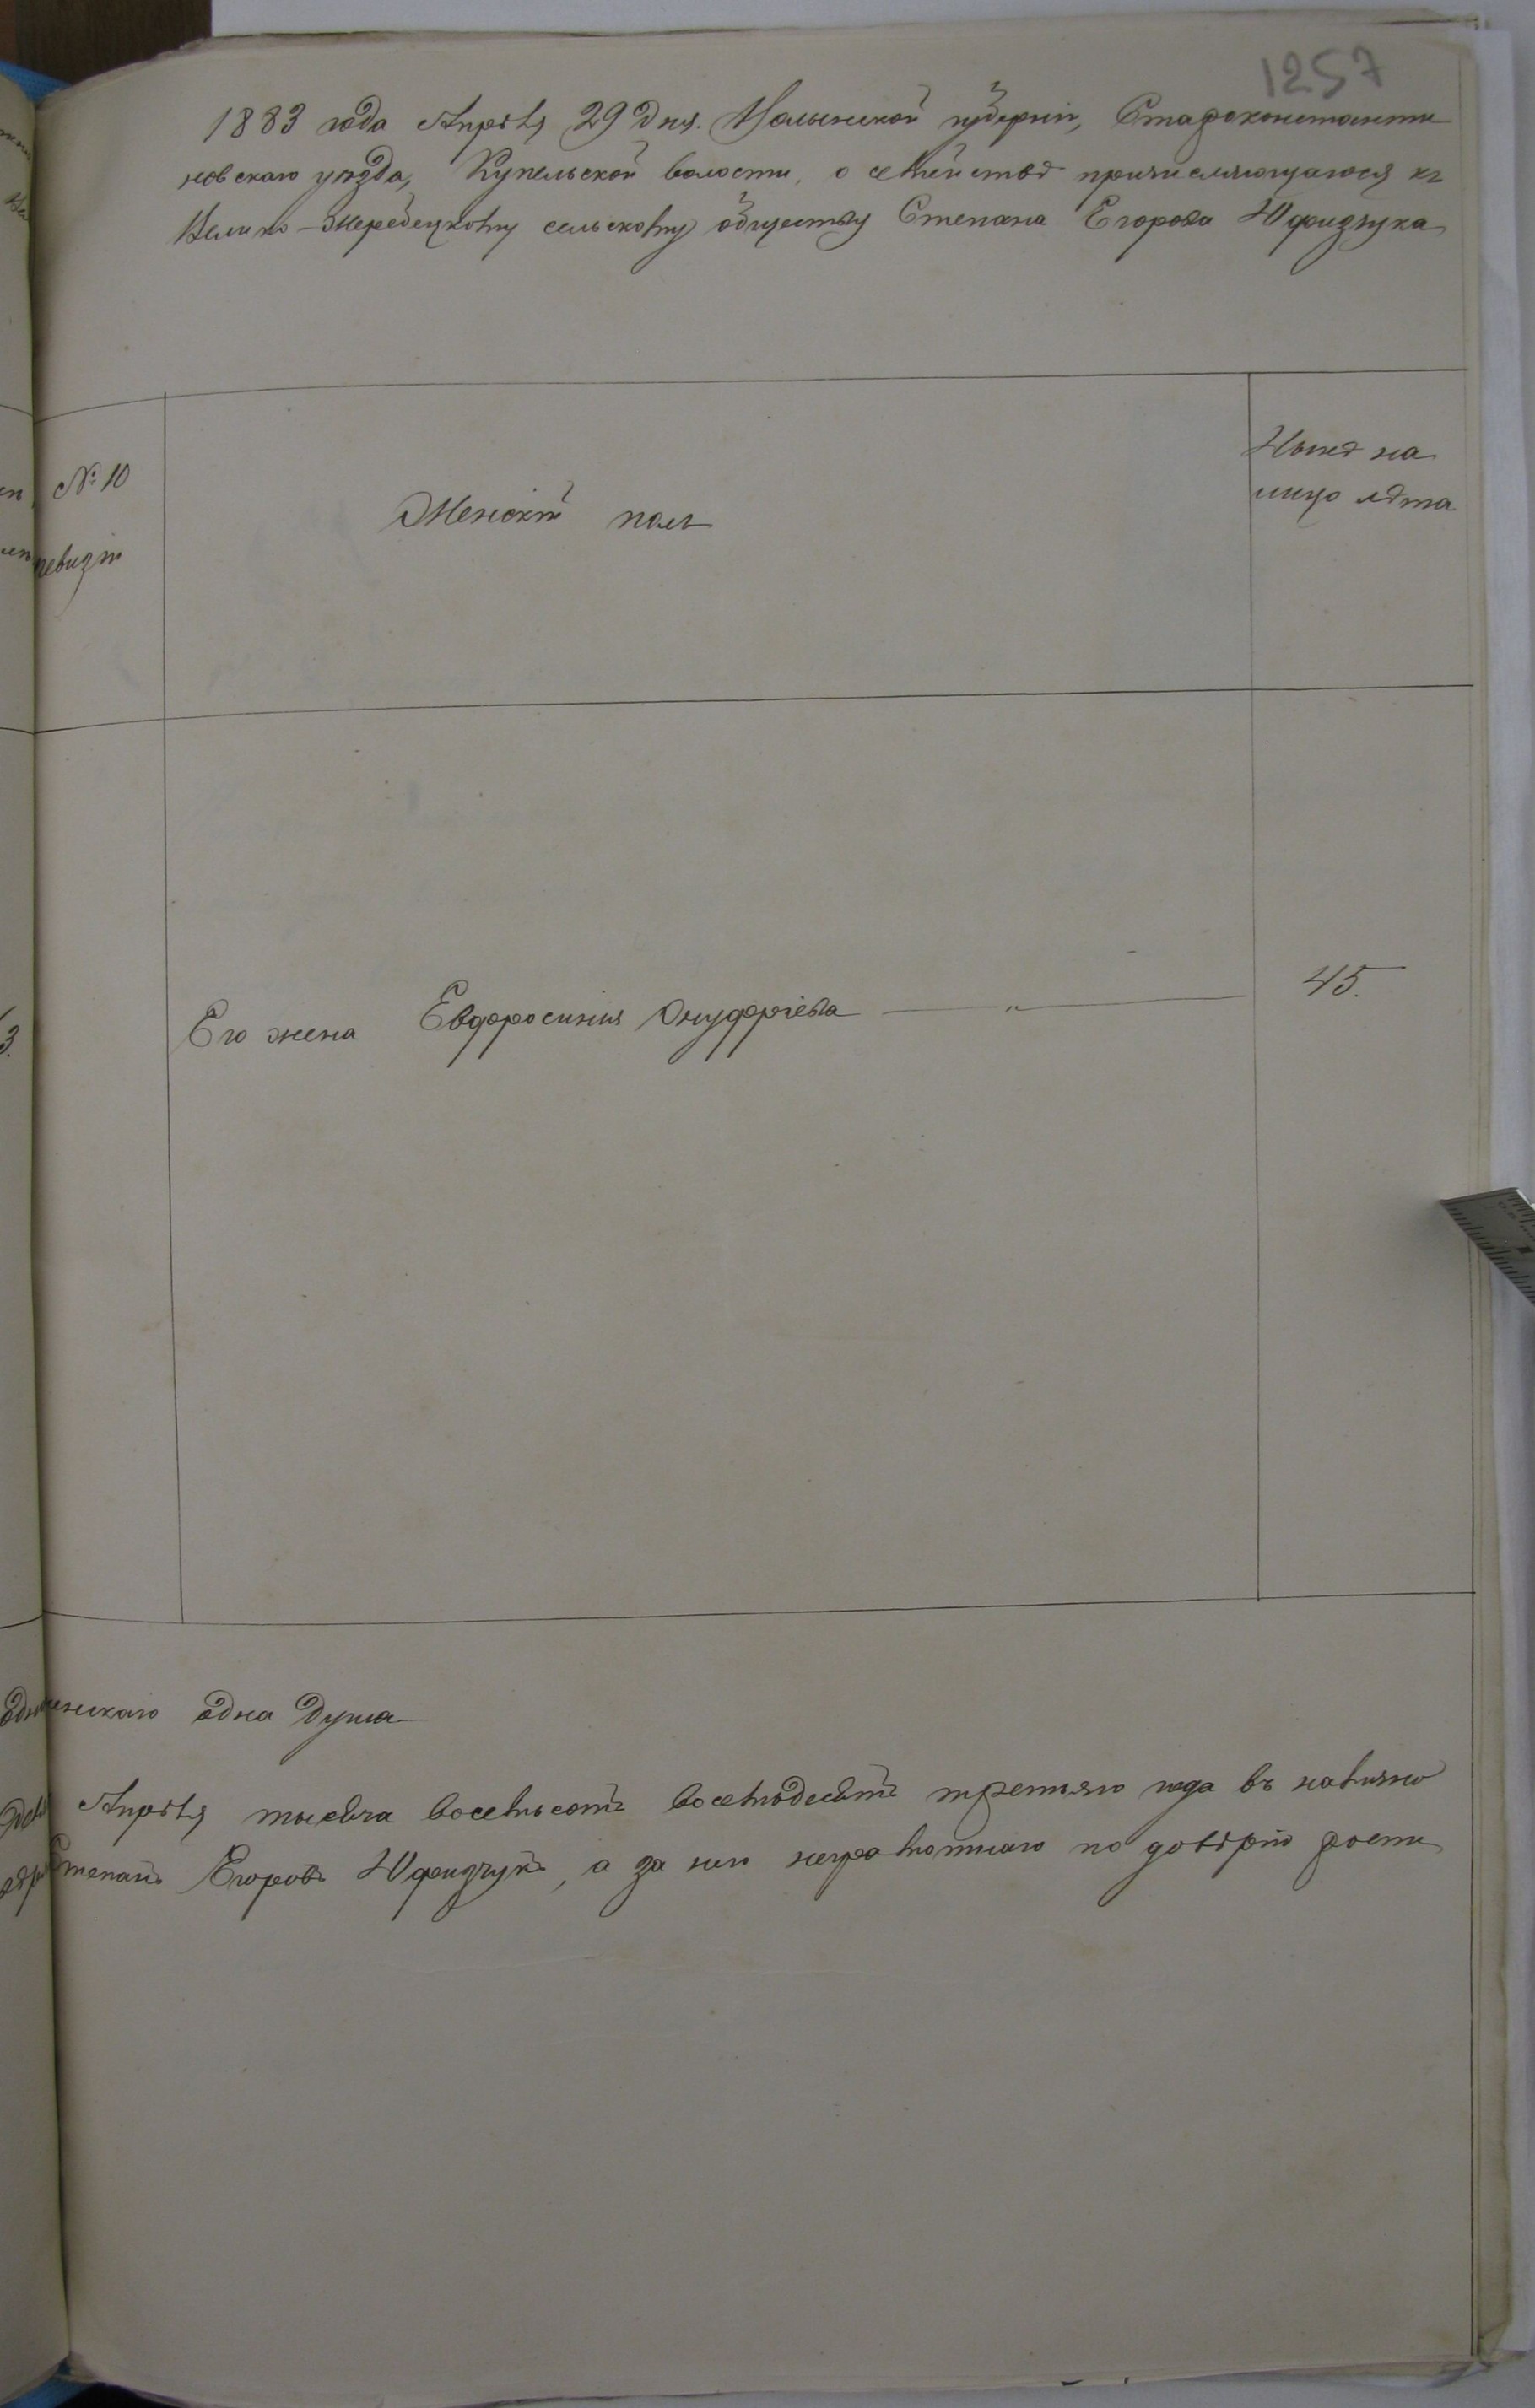 1257
1883 года Апрѣля 29 дня. Волынской губерніи, Староконстанти
новскаго уѣзда, Купельской волости, о семействѣ причисляющагося къ
Велико-Жеребецкому сельскому обществу Степана Егорова Юфизчука
№ 10
ревизіи
Женскій полъ
Нынѣ на
лицо лѣта
Его жена Евфросинія Онуфріева — „ —
45.
женскаго одна душа
Апрѣля тысяча восемьсотъ восемьдесятъ третьяго года въ
Степанъ Егоровъ Юфизчукъ, а за него неграмотнаго по довѣрію